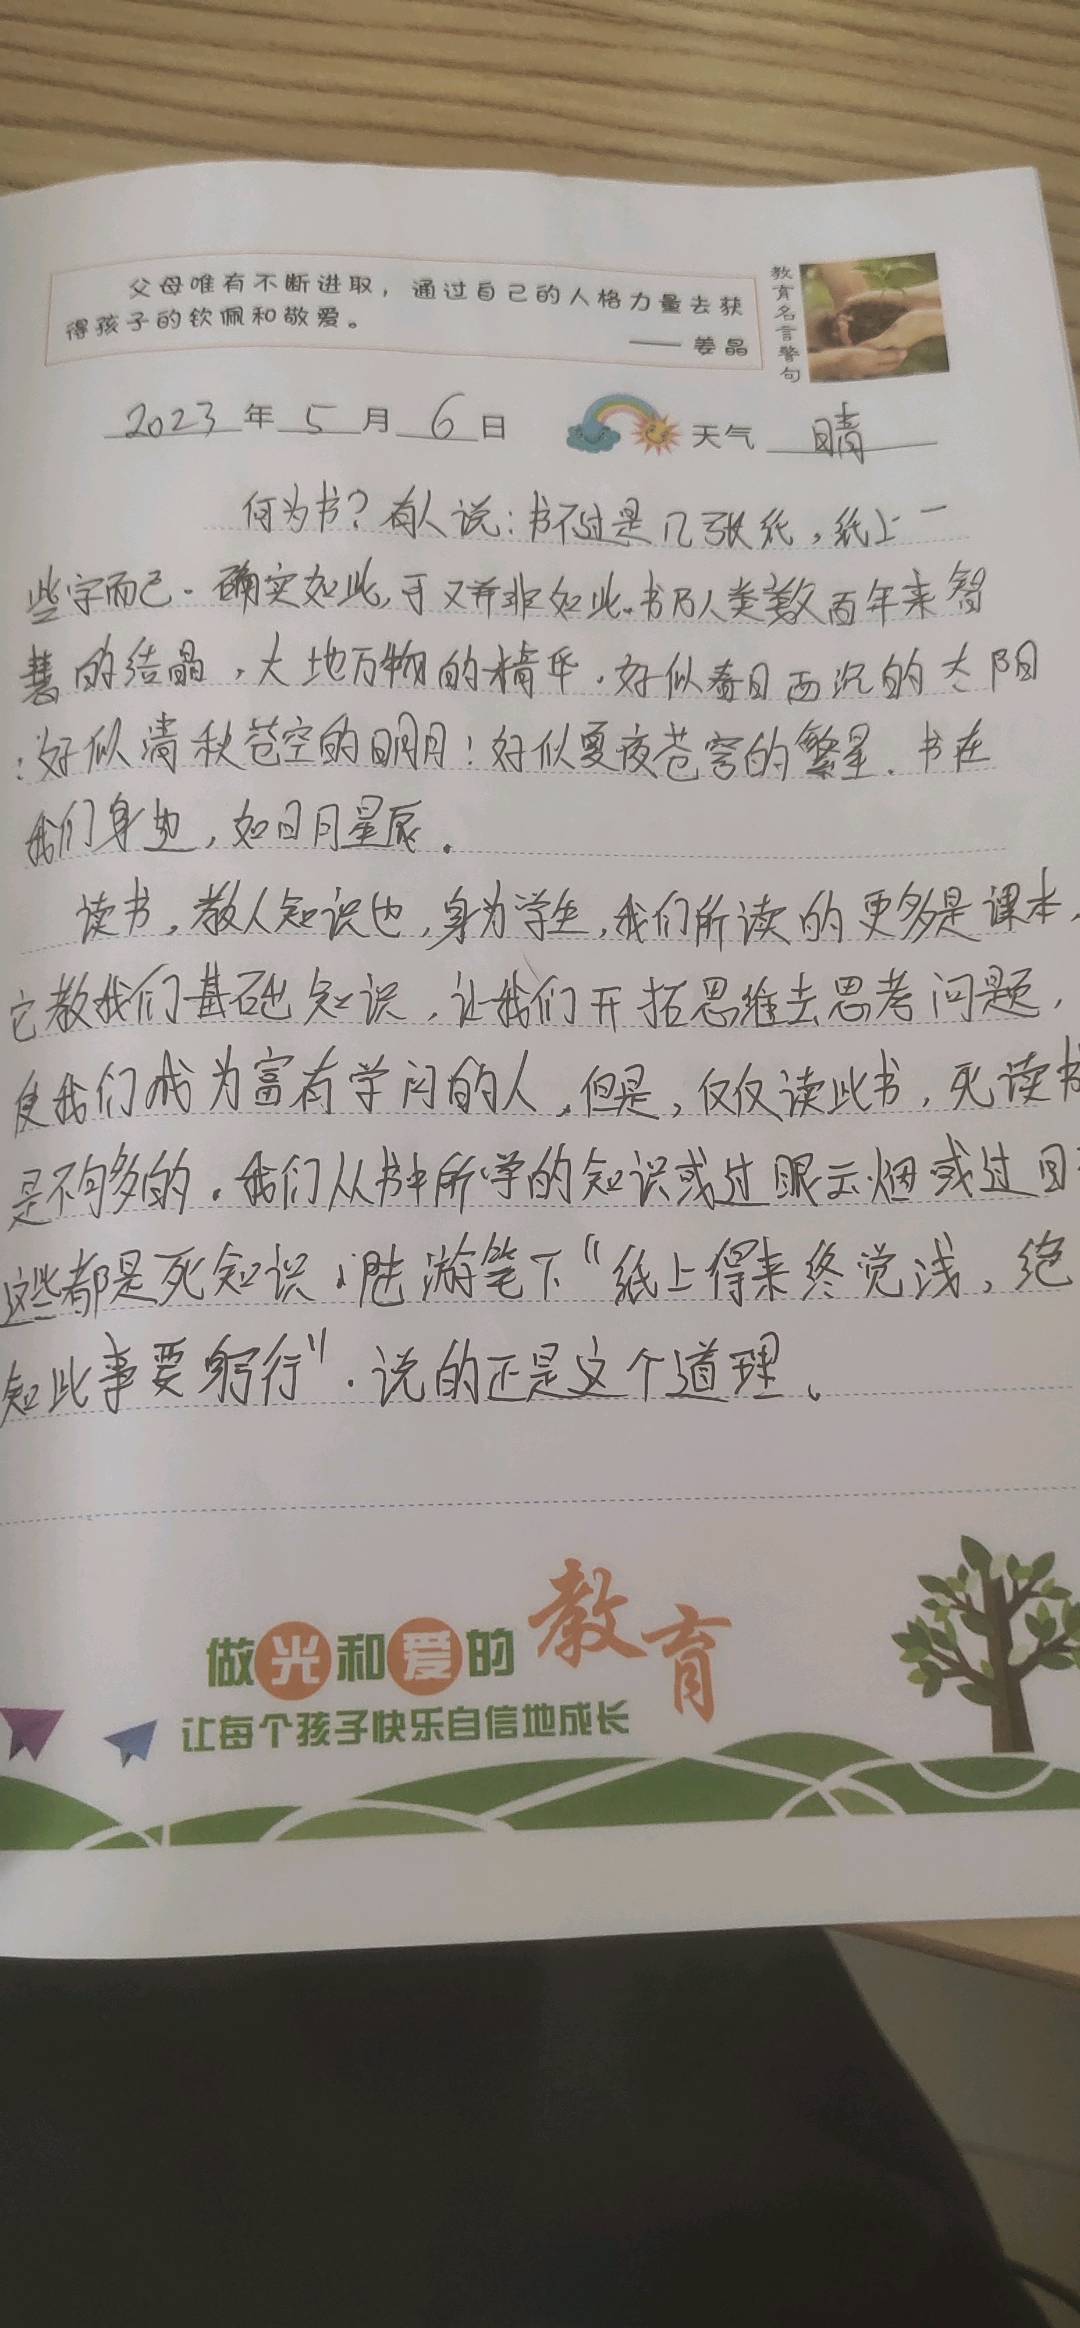 父母唯有不断进取，通过自己的人格力量去获
得孩子的钦佩和敬爱。
—— 姜晶
教育名言警句
2023年5月6日 天气 晴
何为书？有人说：书不过是几张纸，纸上一
些字而己．确实如此，可又并非如此．书乃人类数百年来智
慧的结晶，大地万物的精华．好似春日西沉的太阳
；好似清秋苍空的明月！好似夏夜苍穹的繁星．书在
我们身边，如日月星辰．
读书，教人知识也，身为学生，我们所读的更多是课本，
它教我们基础知识，让我们开拓思维去思考问题，
使我们成为富有学问的人，但是，仅仅读此书，死读书
是不够多的．我们从书中所学的知识或过眼云烟或过目
这些都是死知识，陆游笔下“纸上得来终觉浅，绝
知此事要躬行”．说的正是这个道理。
做光和爱的教育
让每个孩子快乐自信地成长